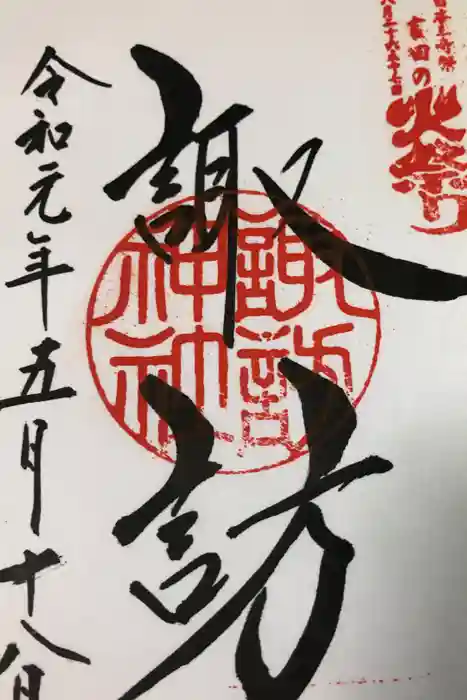 日本三奇祭
吉田の
火祭り
八月二十六二十七日
諏訪
諏訪
神社
令和元年五月十八日